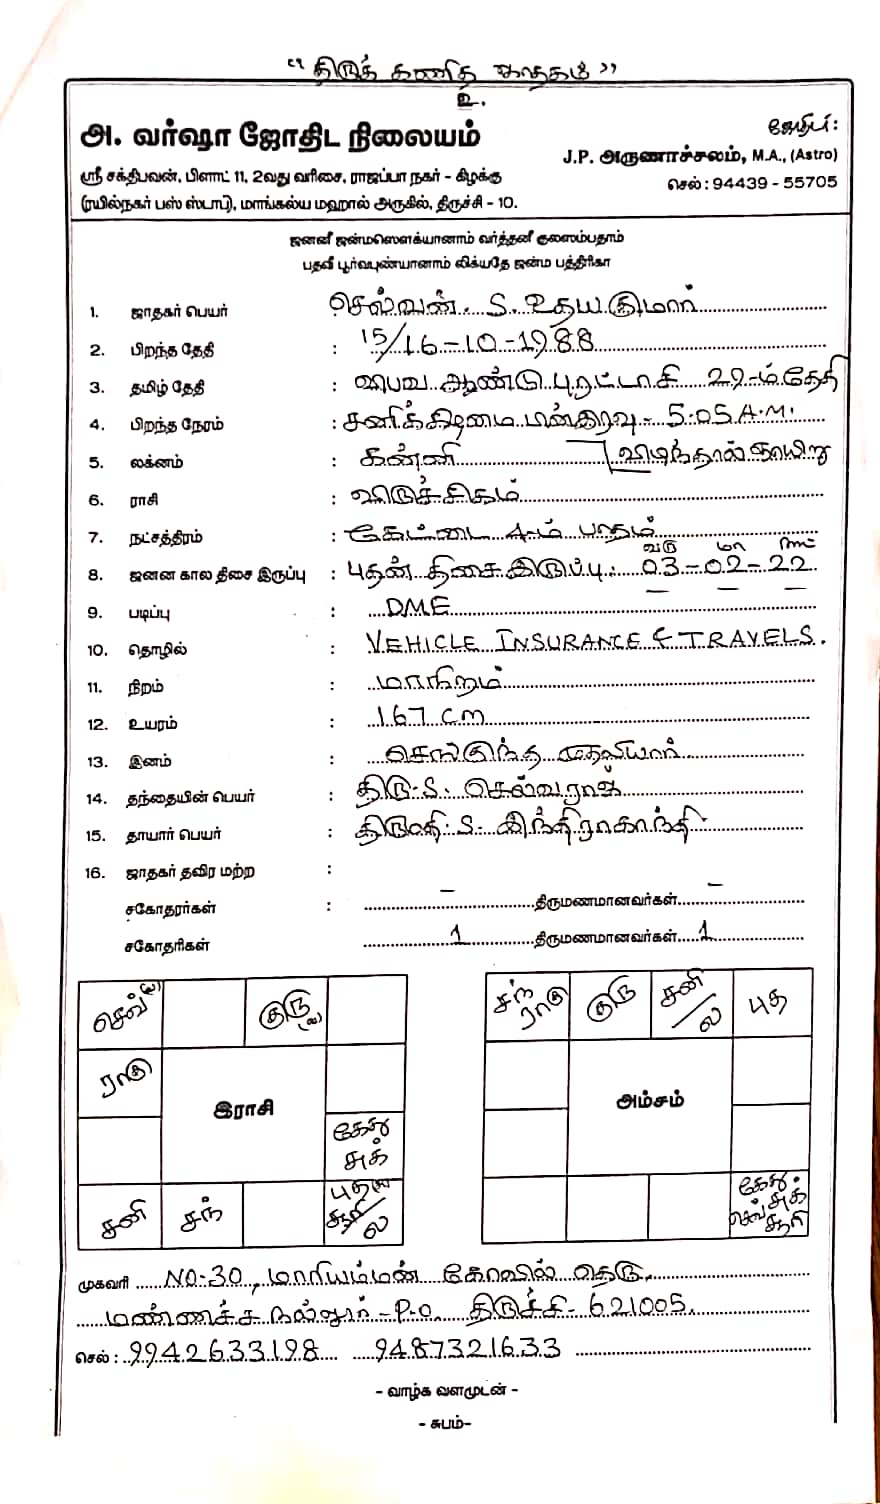 "திருக் கணித ஜாதகம்"
உ.
அ. வர்ஷா ஜோதிட நிலையம்
ஜோதிடர்:
J.P. அருணாச்சலம், M.A., (Astro)
ஸ்ரீ சக்திபவன், பிளாட் 11, 2வது வரிசை, ராஜப்பா நகர் - கிழக்கு
செல் : 94439 - 55705
(ரயில்நகர் பஸ் ஸ்டாப்), மாங்கல்ய மஹால் அருகில், திருச்சி - 10.
ஜனனீ ஜன்மஸௌக்யானாம் வர்த்தனீ குலஸம்பதாம்
பதவீ பூர்வபுண்யானாம் லிக்யதே ஜன்ம பத்ரிகா
1. ஜாதகர் பெயர் செல்வன். S. உதயகுமார்
2. பிறந்த தேதி : 15/16-10-1988
3. தமிழ் தேதி : விபவ ஆண்டு புரட்டாசி 29-ம்தேதி
4. பிறந்த நேரம் : சனிக்கிழமை பின்இரவு - 5.05 A.M.
5. லக்னம் : கன்னி விடிந்தால் ஞாயிறு
6. ராசி : விருச்சிகம்
7. நட்சத்திரம் : கேட்டை 4-ம் பாதம்
வரு மா நாட்
8. ஜனன கால திசை இருப்பு : புதன் திசை இருப்பு : 03-02-22
9. படிப்பு : DME
10. தொழில் : VEHICLE INSURANCE & TRAVELS.
11. நிறம் : மாநிறம்
12. உயரம் : 167 cm
13. இனம் : செங்குந்த முதலியார்
14. தந்தையின் பெயர் : திரு. S. செல்வராஜ்
15. தாயார் பெயர் : திருமதி. S. இந்திராகாந்தி
16. ஜாதகர் தவிர மற்ற :
சகோதரர்கள் : – திருமணமானவர்கள் –
சகோதரிகள் 1 திருமணமானவர்கள் 1
செவ்(வ) குரு(வ)
ராகு
இராசி
கேது சுக்
சனி சந் புத(வ) சூரி/ல
சந் ராகு குரு சனி/ல புத
அம்சம்
கேது சுக் செவ் சூரி
முகவரி NO-30, மாரியம்மன் கோவில் தெரு,
மண்ணச்சநல்லூர் - P.O. திருச்சி - 621005.
செல் : 9942633198 9487321633
- வாழ்க வளமுடன் -
- சுபம்-